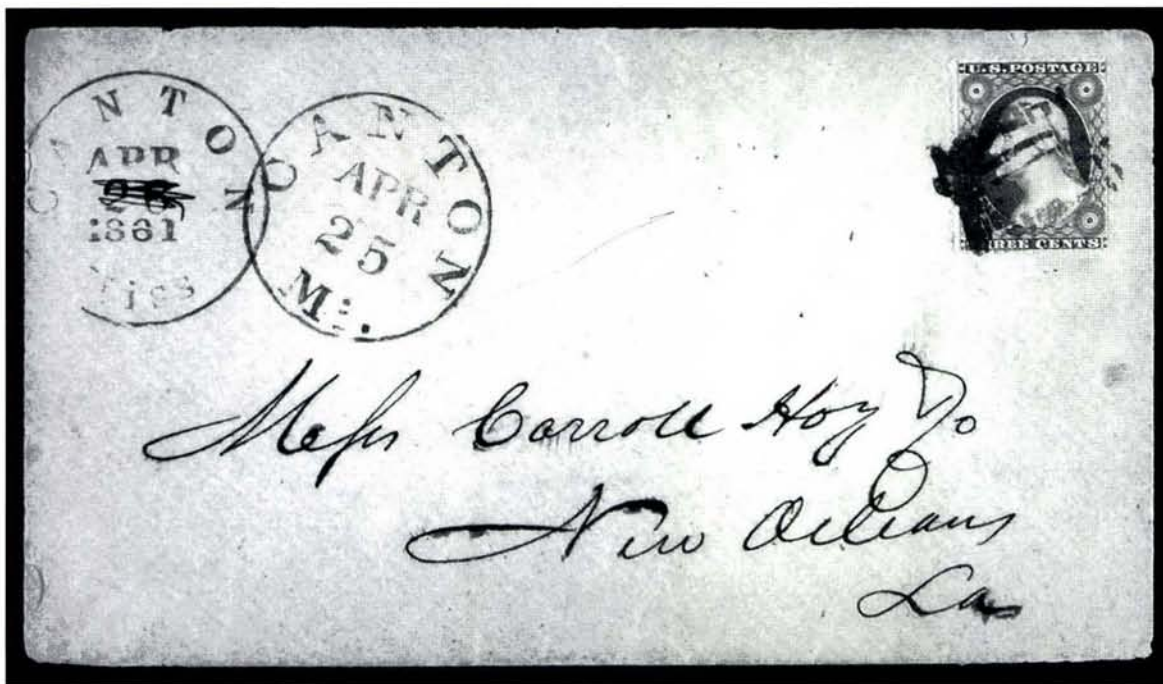 CANTON
APR
1861
Miss
CANTON
APR
25
Mi.
U.S. POSTAGE
THREE CENTS
Messrs Carroll Hoy & Co
New Orleans
La